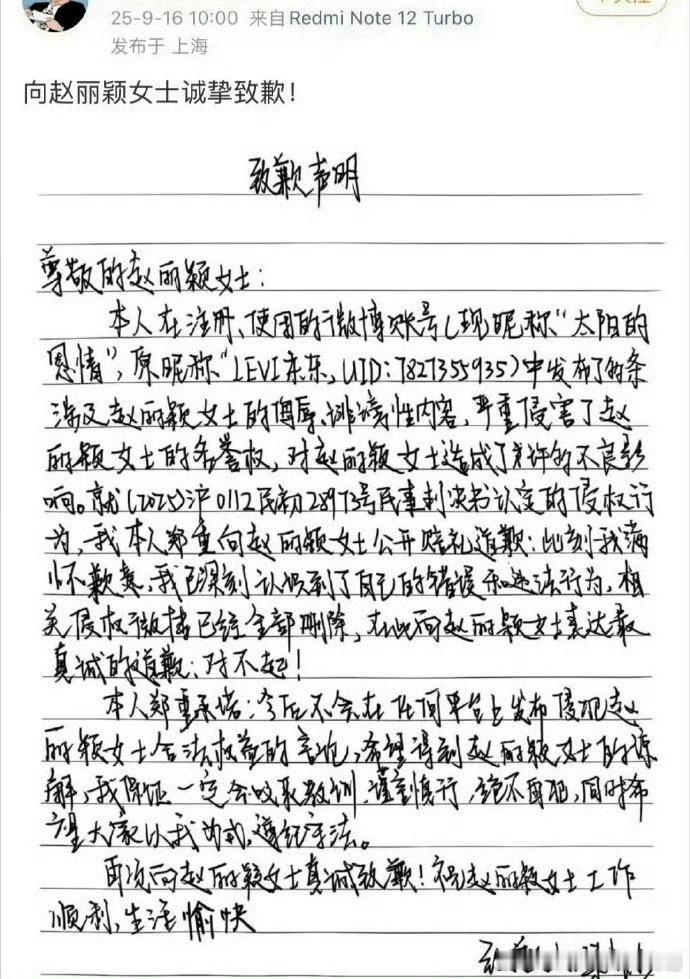 25-9-16 10:00 来自Redmi Note 12 Turbo
发布于 上海
向赵丽颖女士诚挚致歉！
致歉声明
尊敬的赵丽颖女士：
本人在注册、使用的微博账号（现昵称“太阳的
恩情”，原昵称“LEVI京东，UID：7827355935）中发布了的条
涉及赵丽颖女士的侮辱、诽谤性内容，严重侵害了赵
丽颖女士的名誉权，对赵丽颖女士造成了允许的不良影
响。就（2025）沪0112民初28973号民事判决书认定的侵权行
为，我本人郑重向赵丽颖女士公开赔礼道歉：此刻我满
怀歉意，我已深刻认识到了自己的错误和违法行为，相
关侵权微博已经全部删除，在此向赵丽颖女士表达最
真诚的道歉：对不起！
本人郑重承诺：今后不会在任何平台上发布侵犯赵
丽颖女士合法权益的言论，希望得到赵丽颖女士的谅
解，我保证一定会吸取教训，谨言慎行，绝不再犯，同时希
望大家以我为戒，遵纪守法。
再次向赵丽颖女士真诚致歉！祝赵丽颖女士工作
顺利，生活愉快